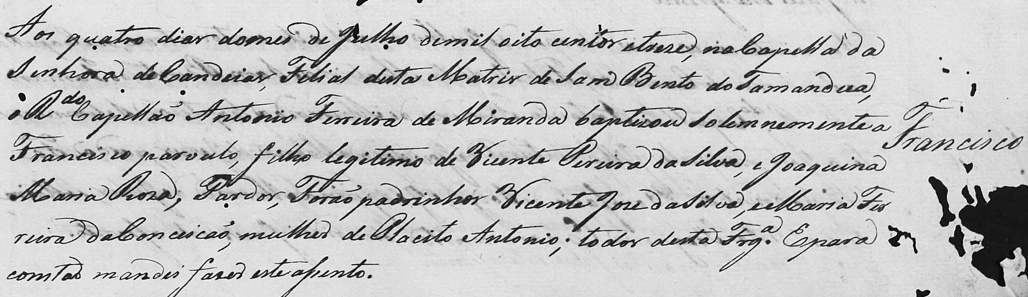 Aos quatro dias do mes de Julho de mil oito centos e treze, na Capella da
Senhora de Candeias, Filial desta Matris de Sam Bento do Tamandua,
o Rdo Capellão Antonio Ferreira de Miranda baptizou solemnemente a
Francisco
Francisco parvulo, filho legitimo de Vicente Pereira da Silva, e Joaquina
Maria Roza, Pardos, Forão padrinhos Vicente Jose da Silva, e Maria Fer
reira da Conceicão, mulher de Placito Antonio; todos desta Frga. E para
constar mandei fazer este assento.